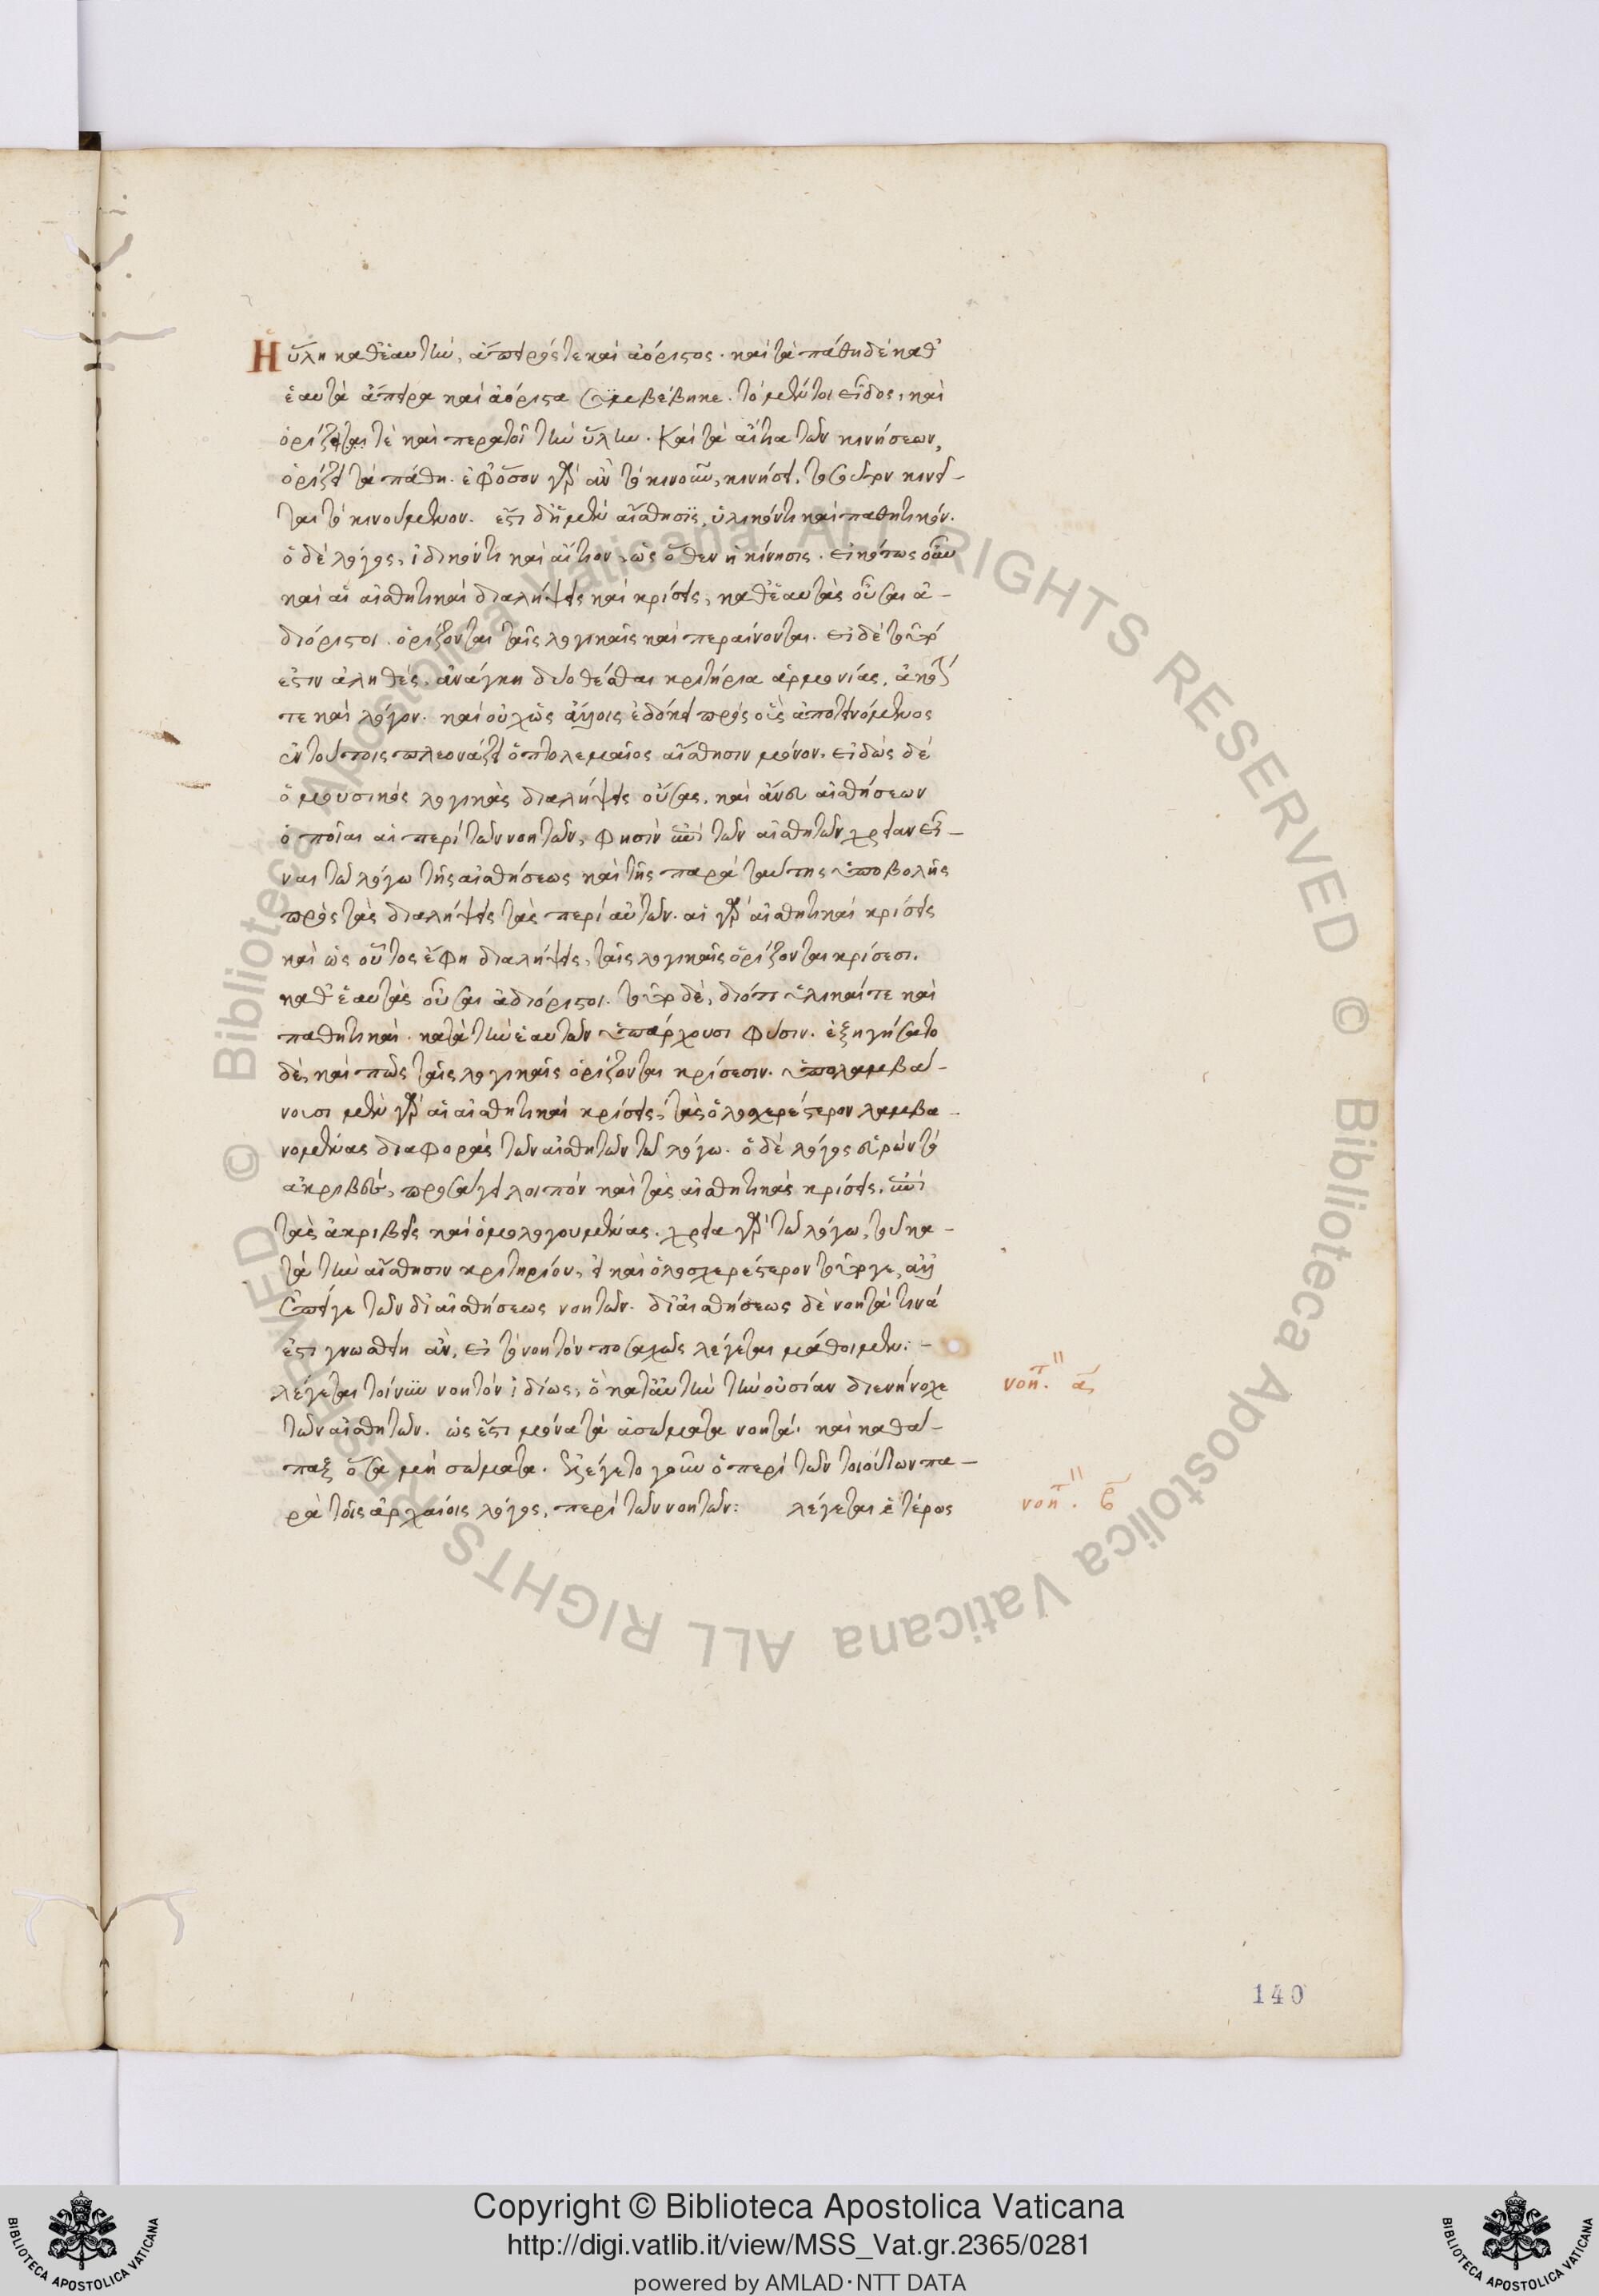 Ἡ ὕλη καθ' ἑαυτὴν, ἄπειρός τε καὶ ἀόριστος. καὶ τὰ πάθη δὲ καθ'
ἑαυτὰ ἄπειρα καὶ ἀόριστα συμβέβηκε. τὸ μέντοι εἶδος, καὶ
ὁρίζεται τὲ καὶ περατοῖ τὴν ὕλην. Καὶ τὰ αἴτια τῶν κινήσεων,
ὁρίζει τὰ πάθη. ἐφ' ὅσον γὰρ ἂν τὸ κινοῦν, κινήσει. τοσοῦτον κινεῖ-
ται τὸ κινούμενον. ἔστι δὴ ἡ μὲν αἴσθησις, ὑλικόν τι καὶ παθητικόν.
ὁ δὲ λόγος, ἰδικόν τι καὶ αἴτιον, ὡς ὅθεν ἡ κίνησις. εἰκότως οὖν
καὶ αἱ αἰσθητικαὶ διαλήψεις καὶ κρίσεις, καθ' ἑαυτὰς οὖσαι ἀ-
διόριστοι. ὁρίζονται ταῖς λογικαῖς καὶ περαίνονται. εἰ δὲ τοῦτό
ἐστιν ἀληθές. ἀνάγκη δύο θέσθαι κριτήρια ἁρμονίας, ἀκοήν
τε καὶ λόγον. καὶ οὐχ ὡς ἄλλοις ἐδόκει πρὸς οἷς ἀποτεινόμενος
ἐν τούτοις πλεονάζει ὁ πτολεμαῖος αἴσθησιν μόνον. εἰδὼς δὲ
ὁ μουσικὸς λογικὰς διαλήψεις οὔσας, καὶ ἄνευ αἰσθήσεων
ὁποῖαι αἱ περὶ τῶν νοητῶν, φησὶν ἐπὶ τῶν αἰσθητῶν χρείαν εἶ-
ναι τῶ λόγω τῆς αἰσθήσεως καὶ τῆς παρὰ ταύτης ὑποβολῆς
πρὸς τὰς διαλήψεις τὰς περὶ αὐτῶν. αἱ γὰρ αἰσθητικαὶ κρίσεις
καὶ ὡς οὗτος ἔφη διαλήψεις, ταῖς λογικαῖς ὁρίζονται κρίσεσι.
καθ' ἑαυτὰς οὖσαι ἀδιόριστοι. τοῦτο δὲ, διότι ὑλικαί τε καὶ
παθητικαὶ. κατὰ τὴν ἑαυτῶν ὑπάρχουσι φύσιν. ἐξηγήσατο
δὲ, καὶ πῶς ταῖς λογικαῖς ὁρίζονται κρίσεσιν. ὑπολαμβά-
νουσι μὲν γὰρ αἱ αἰσθητικαὶ κρίσεις, τὰς ὁλοσχερέστερον λαμβα-
νομένας διαφορὰς τῶν αἰσθητῶν τῶ λόγω. ὁ δὲ λόγος εὑρὼν τὸ
ἀκριβὲς, προσάγει λοιπὸν καὶ τὰς αἰσθητικὰς κρίσεις, ἐπὶ
τὰς ἀκριβεῖς καὶ ὁμολογουμένας. χρεία γὰρ τῶ λόγω, τοῦ κα-
τὰ τὴν αἴσθησιν κριτηρίου, εἰ καὶ ὁλοσχερέστερον τοῦτό γε, ἀλλ'
ἐπεί γε τῶν δι' αἰσθήσεως νοητῶν. δι' αἰσθήσεως δὲ νοητὰ τινά
ἐστι γνωσθείη ἂν, εἰ τὸ νοητὸν ποσαχῶς λέγεται μάθοιμεν:-
λέγεται τοίνυν νοητὸν ἰδίως, ὃ κατ' αὐτὴν τὴν οὐσίαν διενήνοχε νοητ. α
τῶν αἰσθητῶν. ὡς ἔστι μόνα τὰ ἀσώματα νοητά, καὶ καθά-
παξ ὅσα μὴ σώματα. ἐλέγετο γοῦν ὁ περὶ τῶν τοιούτων πα-
ρὰ τοῖς ἀρχαίοις λόγος, περὶ τῶν νοητῶν: λέγεται ἑτέρως νοητ. β
140
Copyright © Biblioteca Apostolica Vaticana
http://digi.vatlib.it/view/MSS_Vat.gr.2365/0281
powered by AMLAD·NTT DATA
BIBLIOTECA APOSTOLICA VATICANA
BIBLIOTECA APOSTOLICA VATICANA
© Biblioteca Apostolica Vaticana ALL RIGHTS RESERVED © Biblioteca Apostolica Vaticana ALL RIGHTS RESERVED